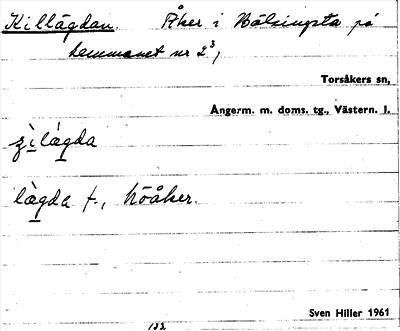 Killägdan. Åker i Hälsingsta på
hemmanet nr 2³,
Torsåkers sn,
Ångerm. m. doms. tg., Västern. l.
lägda f., höåker.
Sven Hiller 1961
132